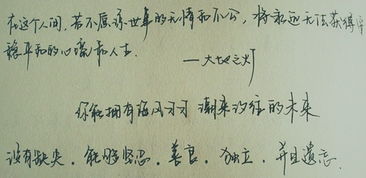 在这个人间，若不原谅世事的无情和不公，将永远无法获得
稳平和的心境和人生
——大地之灯
你能拥有海风习习 潮来汐往的未来
没有缺失，能够坚忍，善良，独立，并且遗忘。